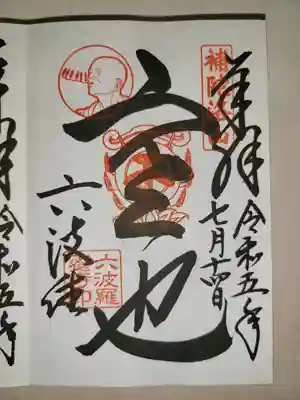 奉拝
令和五年
七月十四日
補陀洛山
空也
六波羅
蜜寺印
六波
奉拝 令和五年